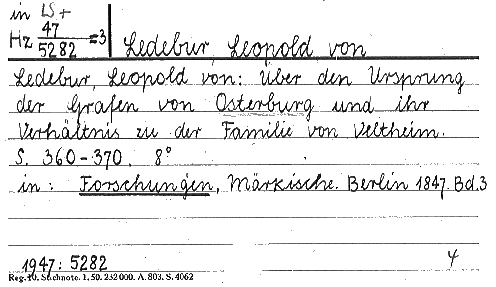 in LS+
Hz 47/5282=3
Ledebur, Leopold von
Ledebur, Leopold von: Über den Ursprung
der Grafen von Osterburg und ihr
Verhältnis zu der Familie von Veltheim.
S. 360-370. 8°
in: Forschungen, Märkische. Berlin 1847. Bd.3
1947: 5282
4
Reg. 10. Stichnote. 1, 50. 232 000. A. 803. S. 4062